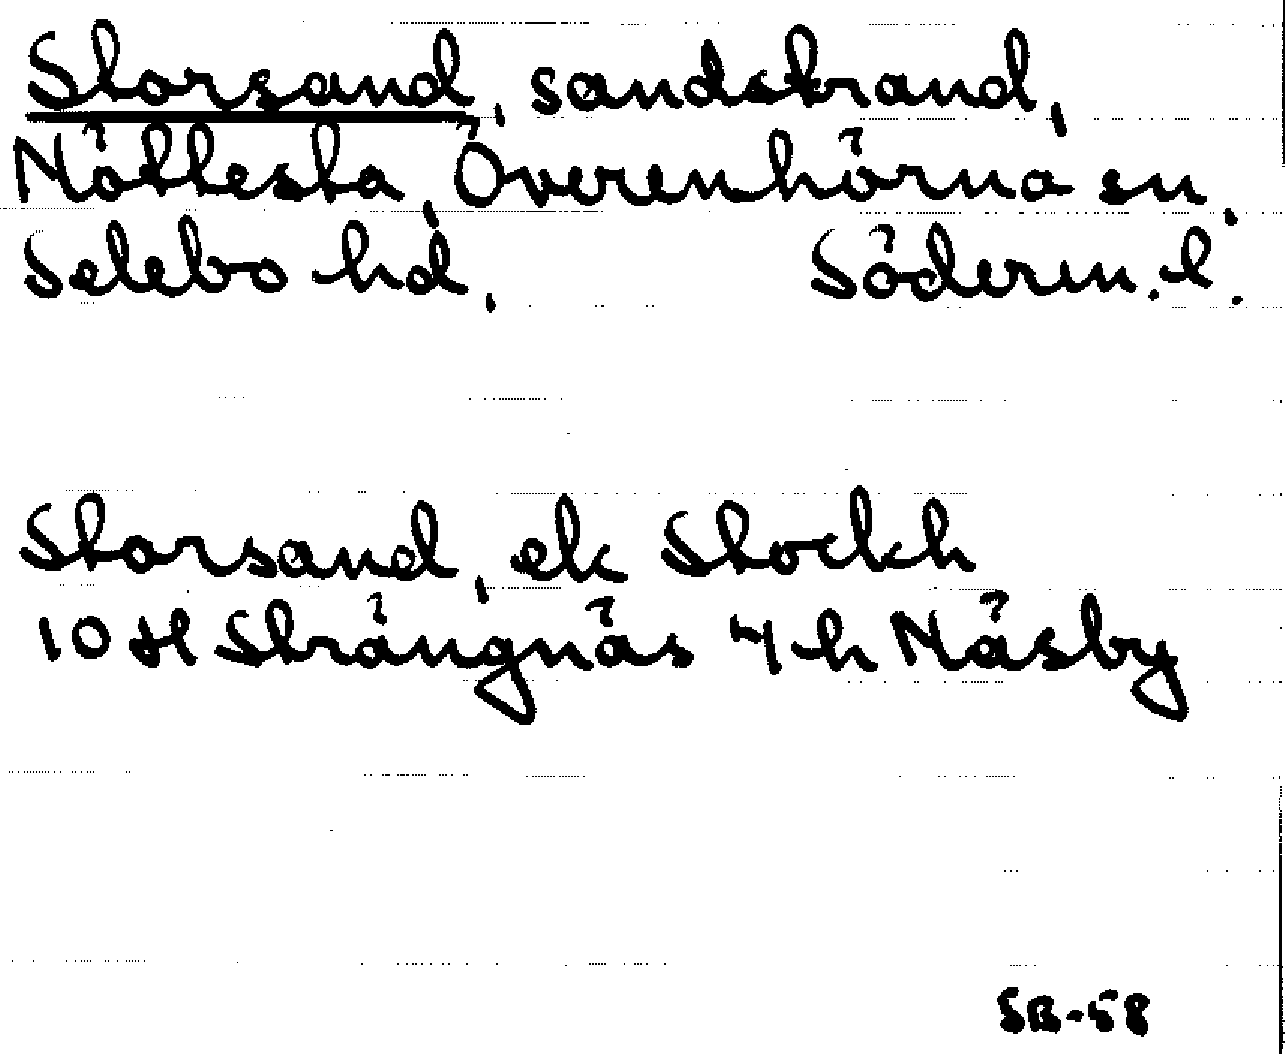 Storsand, sandstrand,
Nöttesta, Överenhörna sn.
Selebo hd, Söderm. l.
Storsand, ek Stockh
10 H Strängnäs 4 h Näsby
SB-58